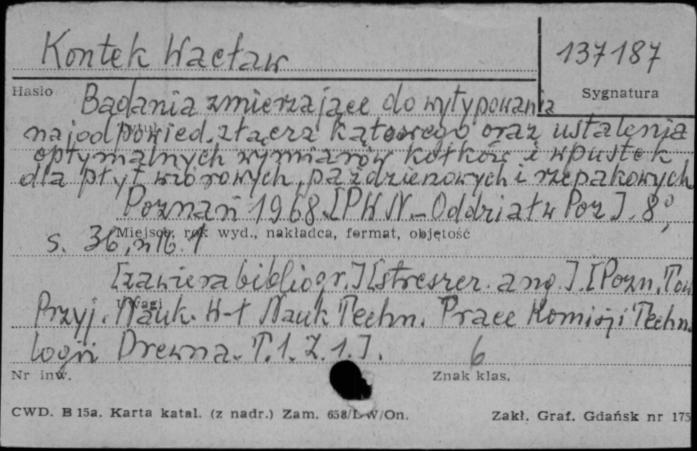 Kontek Wacław
137187
Hasło
Sygnatura
Badania zmierzające do wytypowania
najodpowied. złącza kątowego oraz ustalenia
optymalnych wymiarów kołków i wpustek
dla płyt wiórowych, paździerzowych i rzepakowych
Poznań 1968. [PWN - Oddział w Poz]. 8°,
Miejsce, rok wyd., nakładca, format, objętość
s. 36,
[zawiera bibliogr.] [streszcz. ang.]. [Pozn. Tow
Uwagi
Przyj. Nauk. W-ł Nauk Techn. Prace Komisji Techno
logii Drewna. T.1. Z.1.].
6
Nr inw.
Znak klas.
CWD. B 15a. Karta katal. (z nadr.) Zam. 658/LW/On.
Zakł. Graf. Gdańsk nr 175